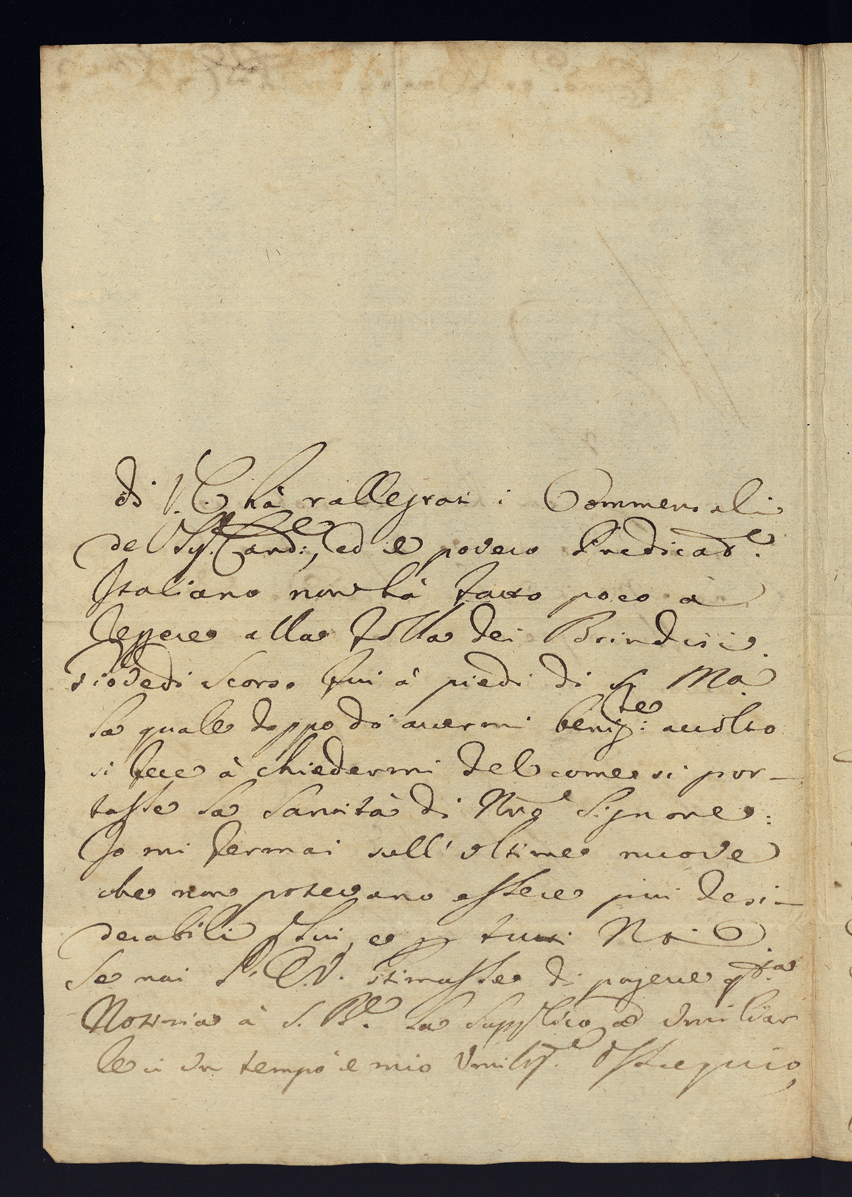 di V. E. hà rallegrati i Commensali
del Sig.r Card:le, ed il povero Predicat.e
Italiano non hà fatto poco à
leggere alla folla dei Brindisi.
Giovedì scorso fui à piedi di S. Mà
la quale doppo di avermi benig:te accolto
si fece à chiedermi del come si por-
tasse la Santità di Nrõ Signore:
Io mi fermai sull'ultime nuove
che non potevano essere piu desi-
derabili p lui, e p tutti Noi
Se mai l'E. V. stimasse di porgere q.ta
Notizia à S. B.e la supplico ad umiliar
le in un tempo il mio Umilis.e Ossequio,